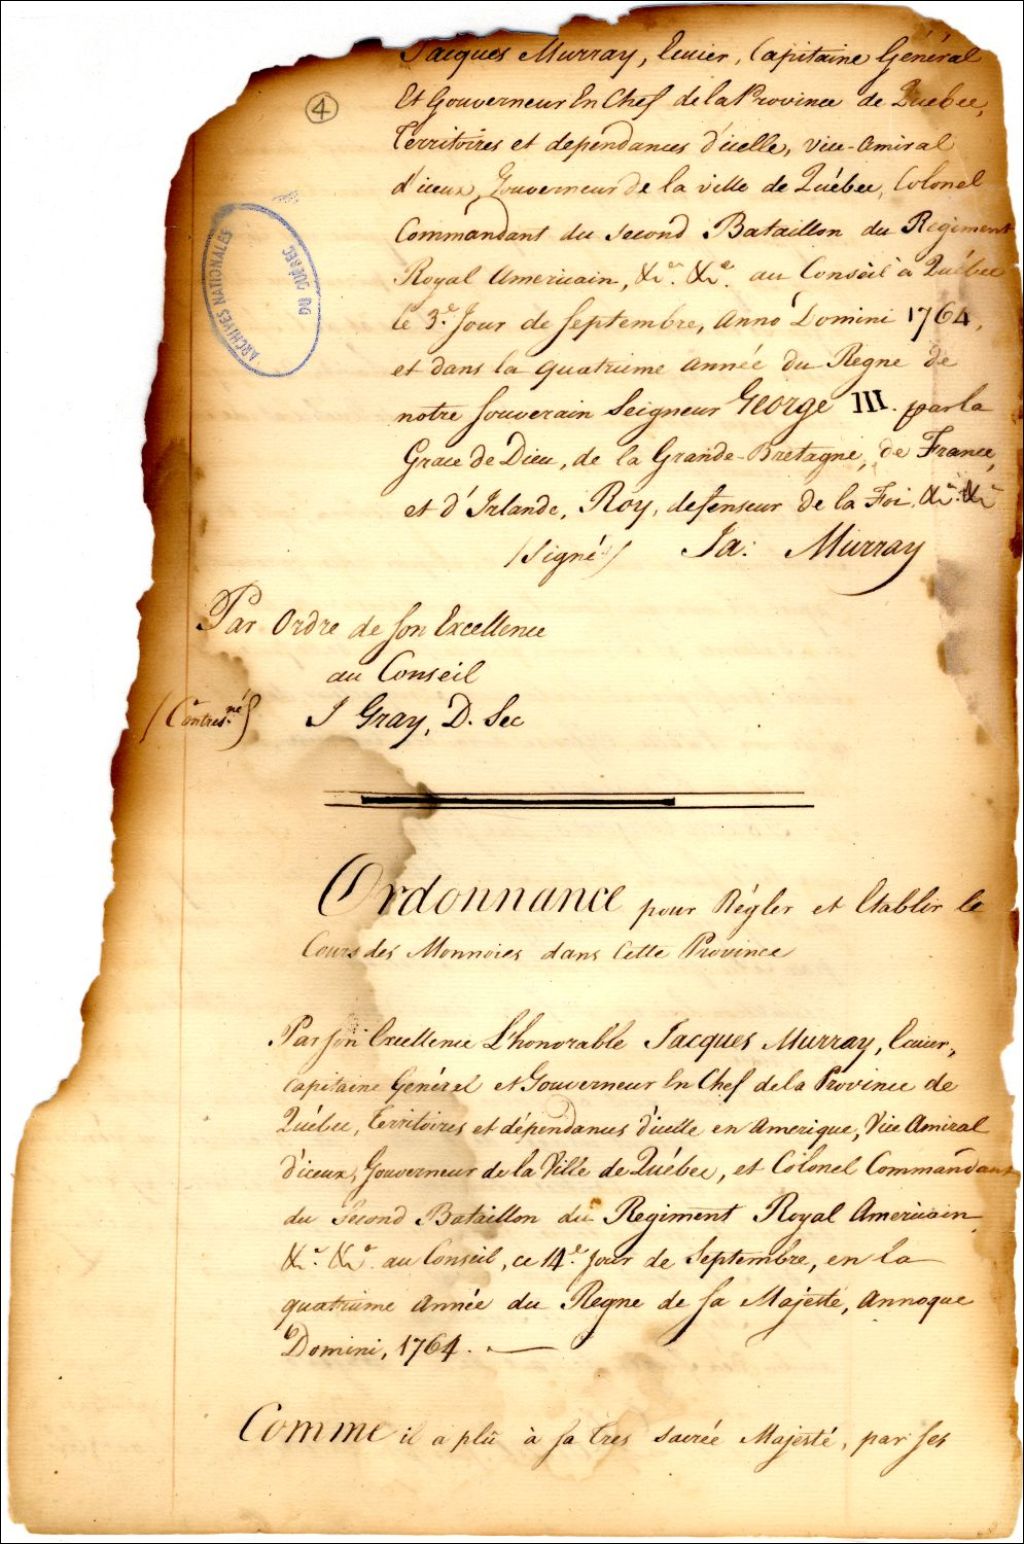 Jacques Murray, Ecuier, Capitaine Général
④
Et Gouverneur En Chef de la Province de Quebec,
Territoires et dependances d'icelle, vice-amiral
d'iceux, Gouverneur de la ville de Québec, Colonel
Commandant du second Bataillon du Regiment
Royal Americain, &c. &c. au Conseil à Québec
le 3.e Jour de Septembre, Anno Domini 1764,
et dans la quatrieme année du Regne de
notre Souverain Seigneur George III. par la
Grace de Dieu, de la Grande-Bretagne, de France,
et d'Irlande, Roy, defenseur de la Foi, &c. &c
(signé) Ja: Murray
ARCHIVES NATIONALES
DU QUÉBEC
Par Ordre de Son Excellence
au Conseil
(Contresigné) J Gray, D. Sec
Ordonnance pour Régler et Etablir le
Cours des Monnoies dans Cette Province
Par Son Excellence L'honorable Jacques Murray, Ecuier,
Capitaine Général et Gouverneur En Chef de la Province de
Québec, Territoires et dépendances d'icelle en Amerique, Vice Amiral
d'iceux, Gouverneur de la Ville de Québec, et Colonel Commandant
du Second Bataillon du Regiment Royal Americain
&c. &c. au Conseil, ce 14.e Jour de Septembre, en la
quatrieme Année du Regne de Sa Majesté, Annoque
Domini, 1764. —
Comme il a plû à Sa tres sacrée Majesté, par Ses